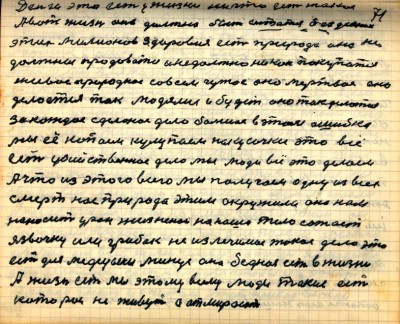 Деньги это есть у жизни ничто есть такая 71
А вот жизнь она должна быть
этих миллионов здоровия есть природа она не
должны продавати и недолжно никак покупатся
живое природное совсем чужое оно мертвое оно
делается так людями и будет оно так делатся
за каждое сделаное дело болшая в этом ошибка
мы её копаем купуем на кусочки это всё
есть убийственное дело мы люди всё это делаем
А что из этого всего мы получаем одну из всех
смерть нас природа этим окружила она нам
наносит урон жизненой на наше тело сажает
язвочку или грибок не излечимое такое дело это
есть для медецыны минус она бедная есть в жизни
А жизнь есть мы этому всему люди такие есть
которые не живут а отмирают